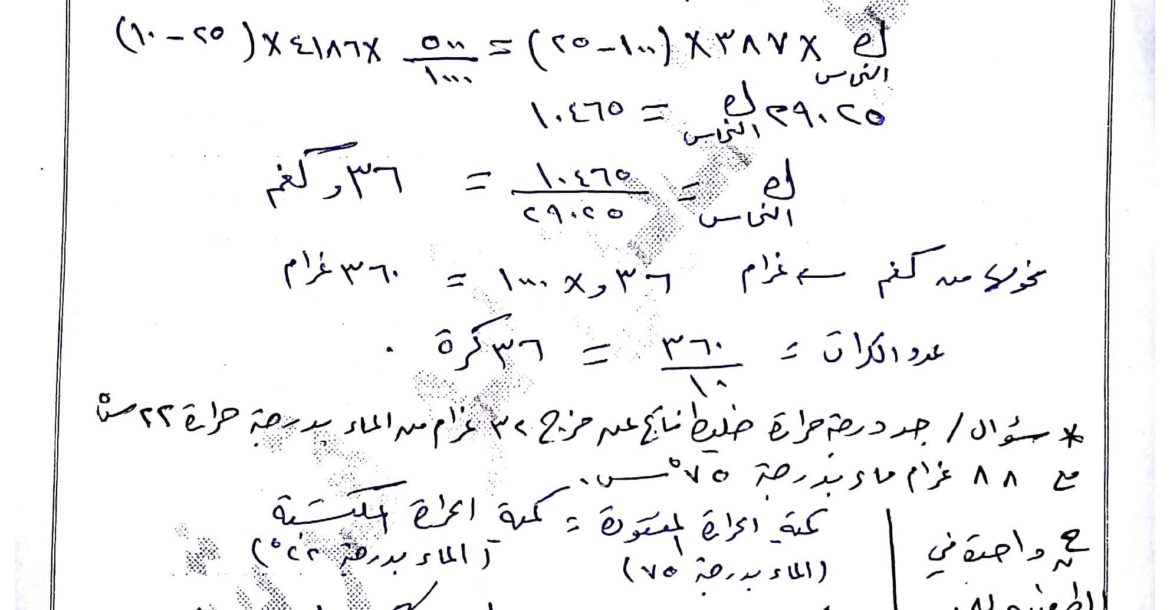 ك النحاس × ٣٨٧ × (١٠٠ - ٢٥) = ٥٠٠/١٠٠٠ × ٤١٨٦ × (٢٥ - ٢٠)
٢٩٠٢٥ ك النحاس = ١٠٤٦٥
ك النحاس = ١٠٤٦٥/٢٩٠٢٥ = ٣٦و كغم
نحولها من كغم ← غرام ٣٦و × ١٠٠٠ = ٣٦٠ غرام
عدد الكرات = ٣٦٠/١٠ = ٣٦ كرة .
* سؤال / جد درجة حرارة خليط ناتج عن مزج ٣٢ غرام من الماء بدرجة حرارة ٢٢ س°
مع ٨٨ غرام ماء بدرجة ٧٥ °س.
كمية الحرارة المفقودة = كمية الحرارة المكتسبة
(الماء بدرجة ٧٥) (الماء بدرجة ٢٢°)
ح واحدة في